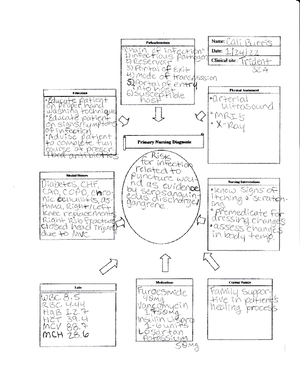 Name: Cali Burris
Date: 1/24/22
Clinical site: Trident
Pathophysiology
Chain of infection
1) infectious pathogen
2) Reservoir
3) Portal of Exit
4) mode of transmission
5) portal of entry
host
Education
• Educate patient
on proper hand
washing technique
• Educate patient
on signs/symptoms
of infection
• Advise patient
to complete full
course of
antibiotics
Physical Assessment
• Arterial
ultrasound
• MRI's
• X-Ray
Primary Nursing Diagnosis
Risk
for infection
related to
puncture wou
nd as evidence
discharge/
gangrene
Medical History
Diabetes, CHF,
CAD, COPD, chro
nic
knee replacement
closed head injury
due to MVC
Nursing Interventions
• know signs of
itching + scratch-
ing
• premedicate for
dressing changes
• assess changes
in body temp
Labs
WBC 8.5
RBC 4.44
HGB 12.7
HCT 39.4
MCV 88.7
MCH 28.6
Medications
Furosemide
Vancomycin
Insulin
2-6 units
Losartan
Potassium
50mg
Coping Issues
Family suppor
tive in patient's
healing process